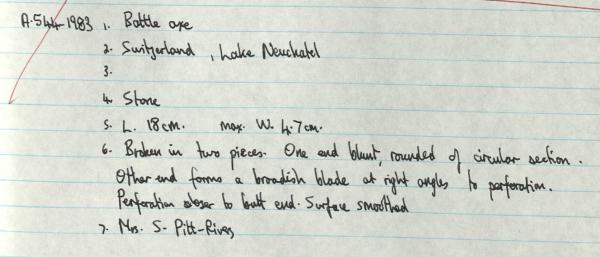 A.544-1983 1. Battle axe
2. Switzerland, Lake Neuchatel
3.
4. Stone
5. L. 18cm. max. W. 4.7cm.
6. Broken in two pieces. One end blunt, rounded of circular section.
Other end forms a broadish blade at right angles to perforation.
Perforation closer to butt end. Surface smoothed
7. Mrs. S. Pitt-Rivers